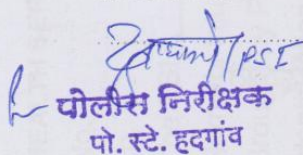 PSI
पोलीस निरीक्षक
पो. स्टे. हदगांव